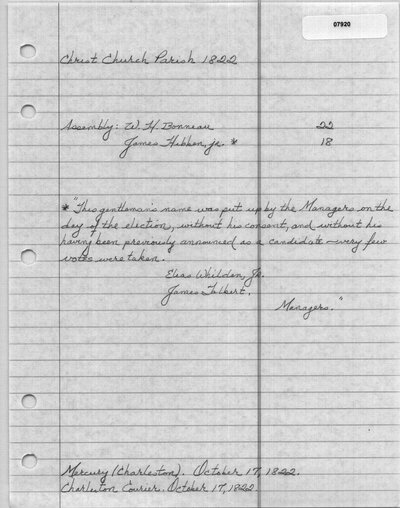 07920
Christ Church Parish 1822
Assembly: W. H. Bonneau 22
James Hibben, jr. * 18
* "This gentleman's name was put up by the Managers on the
day of the election, without his consent, and without his
having been previously announced as a candidate - very few
votes were taken.
Elias Whilden, Jr.
James Tolbert.
Managers."
Mercury (Charleston). October 17, 1822.
Charleston Courier. October 17, 1822.